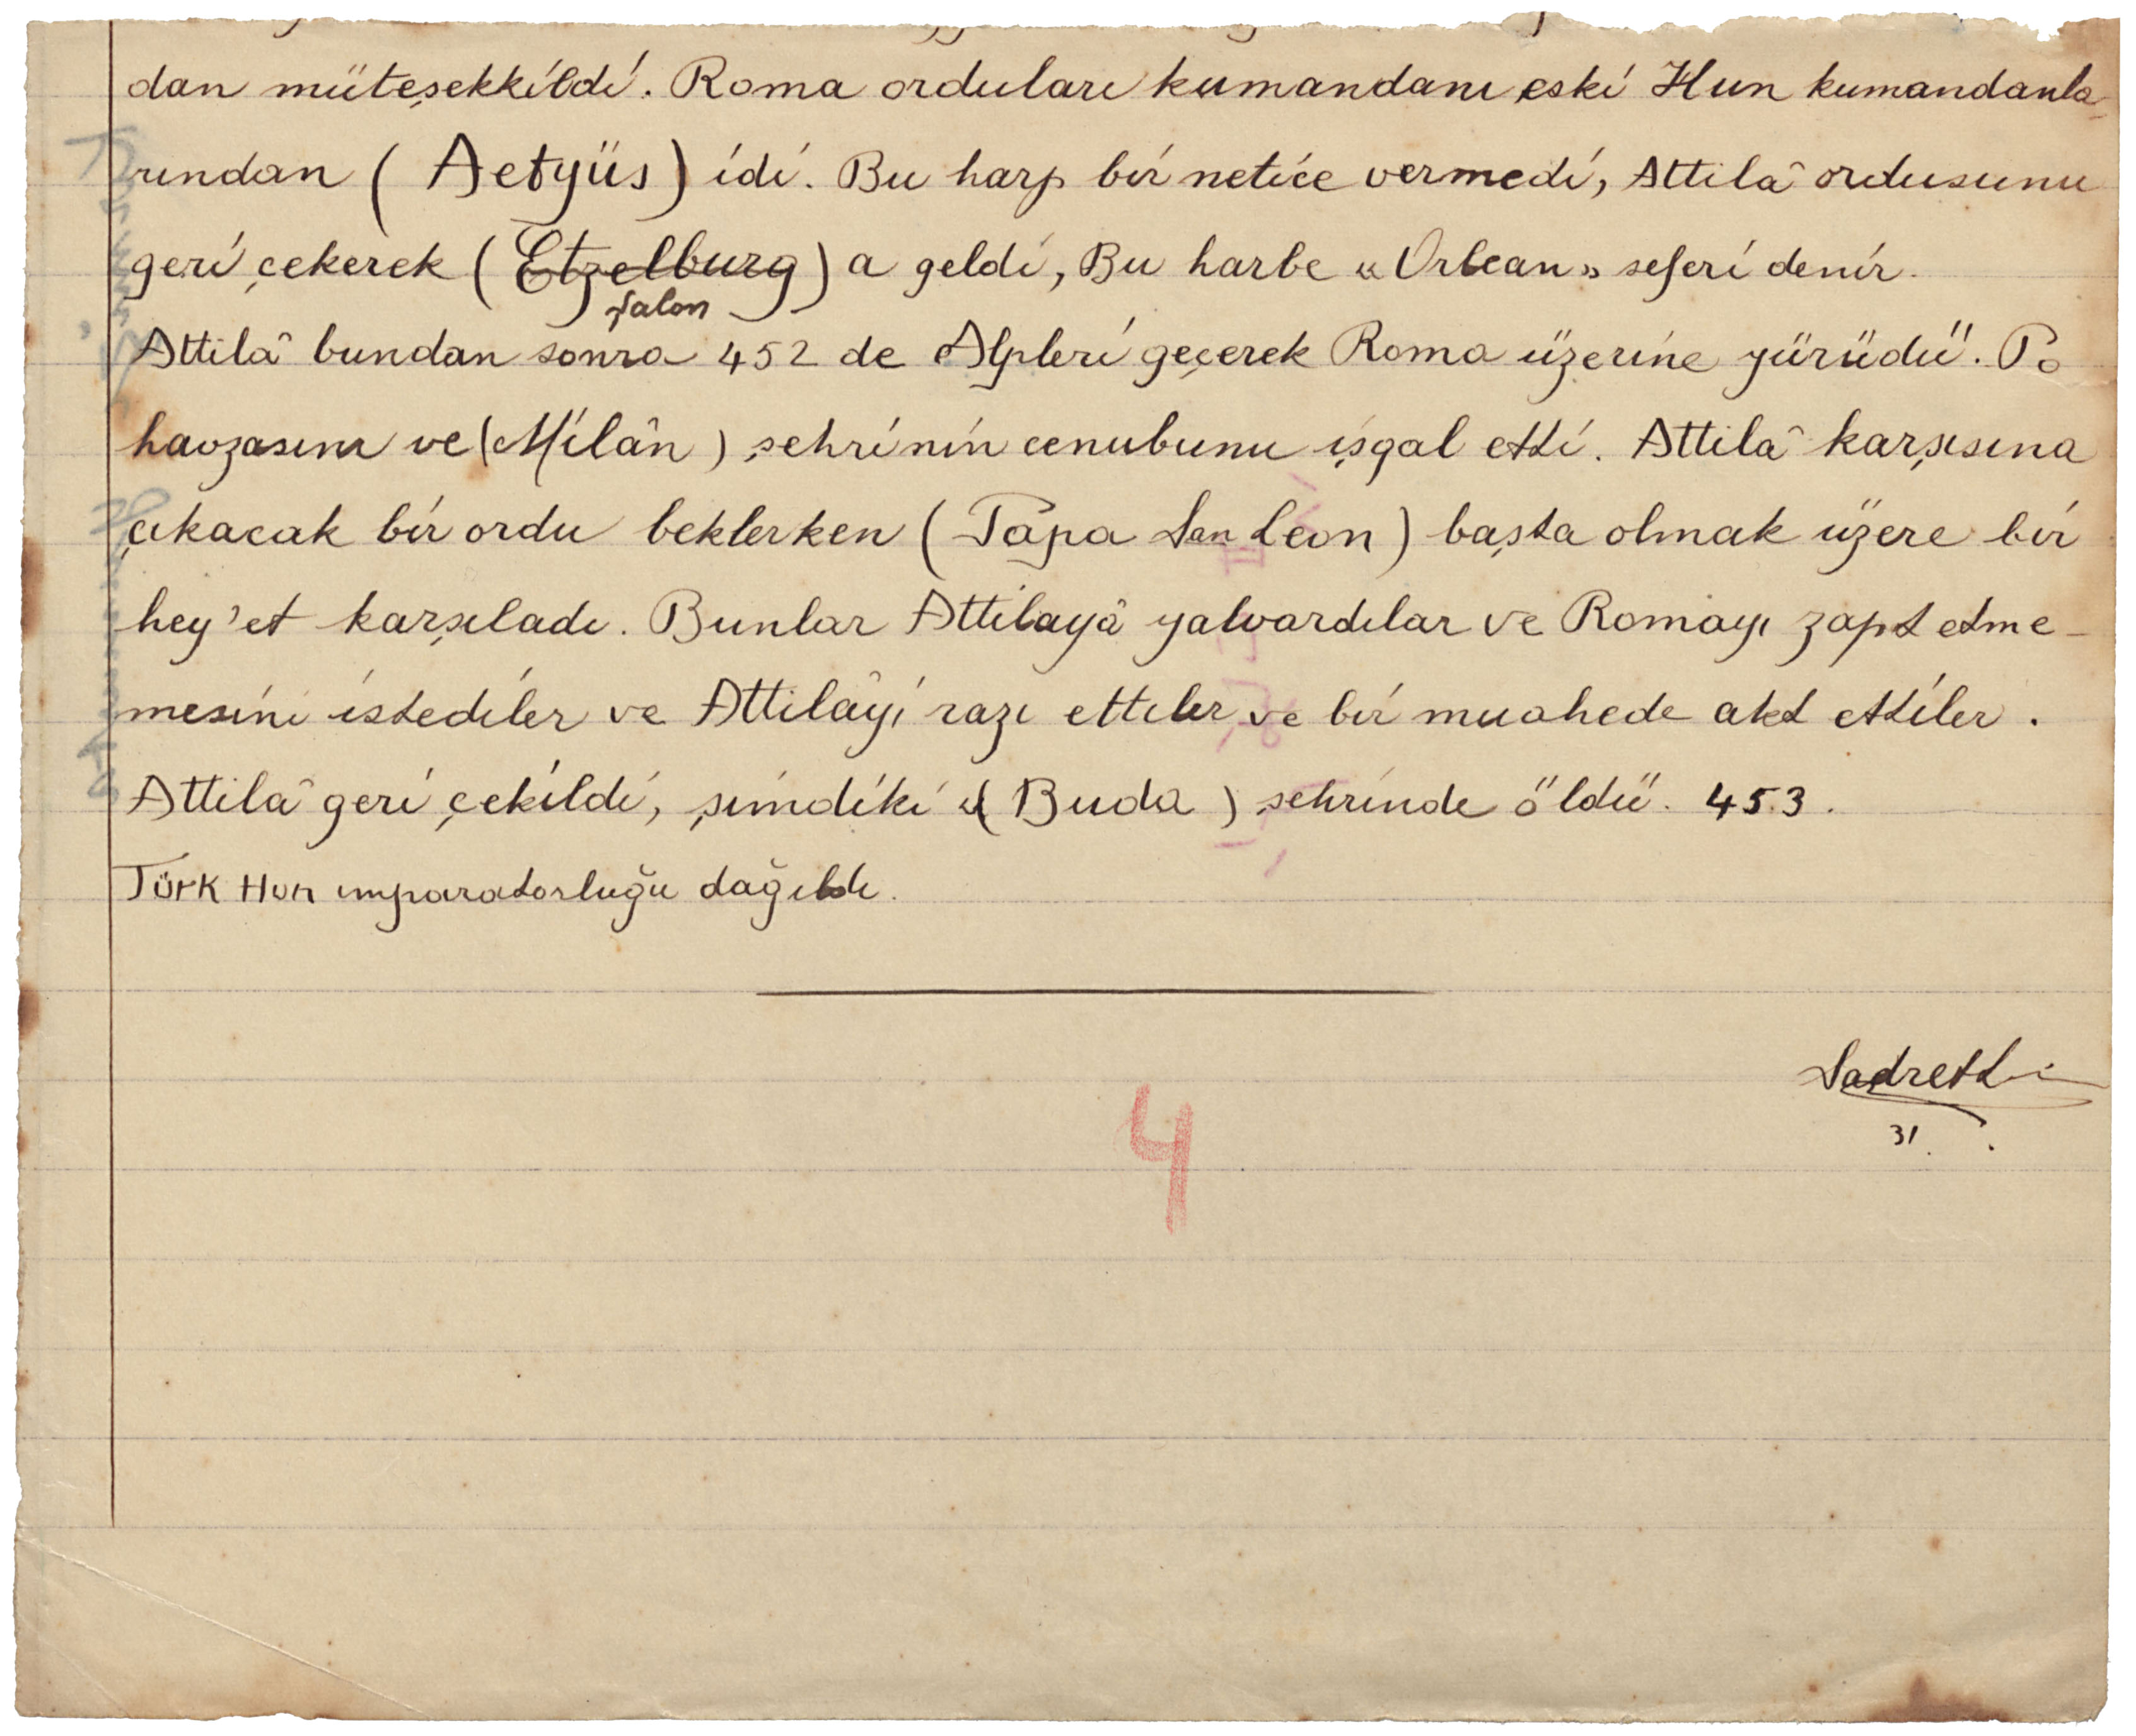 dan müteşekkildi. Roma orduları kumandanı eski Hun kumandanla
rından ( Aetyüs ) idi. Bu harp bir netice vermedi, Attilâ ordusunu
geri çekerek ( Etzelburg ) a geldi, Bu harbe « Orlean » seferi denir.
şalon
Attilâ bundan sonra 452 de Alpleri geçerek Roma üzerine yürüdü. Po
havzasını ve ( Milân ) şehrinin cenubunu işgal etti. Attilâ karşısına
çıkacak bir ordu beklerken ( Papa San Leon ) başta olmak üzere bir
hey'et karşıladı. Bunlar Attilayâ yalvardılar ve Romayı zapt etme-
mesini istediler ve Attilâyi razı ettiler ve bir muahede akt ettiler.
Attilâ geri çekildi, şimdiki ( Buda ) şehrinde öldü. 453.
Türk Hun imparatorluğu dağıldı.
Sadretti
31.
4